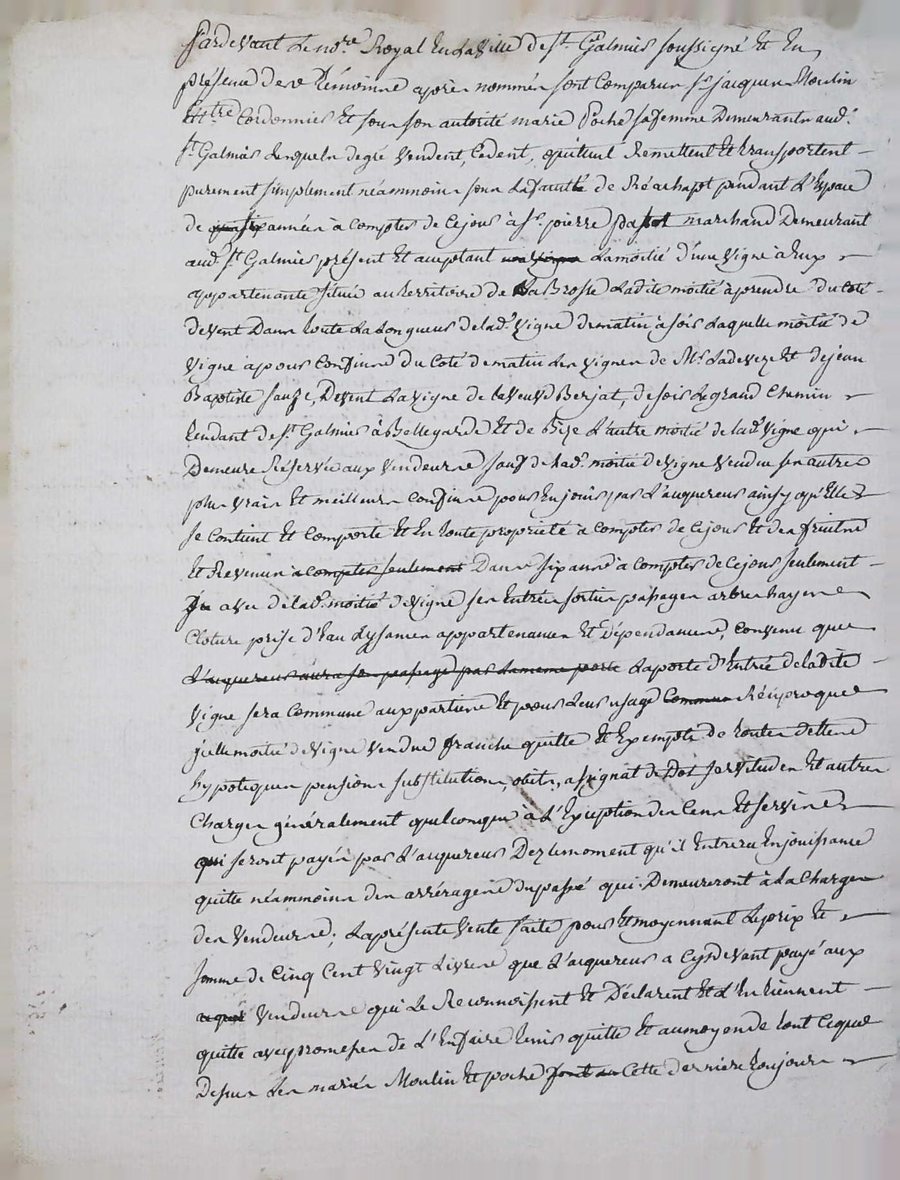 Pardevant Le no.re Royal En La Ville de St Galmier soussigné Et En
présence des Témoins après nommés sont Comparus Sr jacques Moulin
M.tre Cordonnier Et sous son autorité marie Poche sa femme Demeurants aud.
St Galmier Lesquels de gré Vendent, Cèdent, quittent Remettent Et transportent
purement simplement néammoins sous La faculté de Réachapt pendant L'Espace
de six années à Compter de Ce jour à Sr pierre marchand Demeurant
aud. St Galmier présent Et aceptant La moitié d'une Vigne à Eux
appartenante située au Territoire de La Brosse Ladite moitié à prendre du Coté
de vent Dans toute La Longueur de lad. Vigne de matin à soir Laquelle moitié de
Vigne a pour Confins du Coté de matin Les Vignes de Mr Ladeveze Et de jean
Baptiste sauze, De vent La Vigne de la Veuve Berjat, de soir Le grand Chemin
tendant de St Galmier à Bellegarde Et de Bize L'autre moitié de lad. Vigne qui
Demeure Réservée aux Vendeurs sauf de lad. moitié de Vigne Vendue ses autres
plus Vrais Et meilleurs Confins pour En jouir par L'aquereur ainsy qu'Elle
se Contient Et Comporte Et En toute propriété à Compter de Ce jour Et des fruits
Et Revenus à Compter seulement Dans six ans à Compter de Ce jour seulement
avec de lad. moitié de Vigne ses Entrées sorties passages arbres hayes
Cloture prise d'Eau aysances appartenances Et Dépendances, Convenu que
L'aquereur aura son passage par La meme porte La porte d'Entrée de Ladite
Vigne sera Commune aux parties Et pour Leur usage Commun Réciproque
jcelle moitié de Vigne Vendue franche quitte Et Exempte de toutes dettes
hypotèques pensions substitutions, obits, assignat de Dot servitudes Et autres
Charges généralement quelconques à L'Exception des Cens Et servis
qui seront payés par L'aquereur Dez Le moment qu'il Entrera En jouissance
quitte néammoins des arrérages du passé qui Demeureront à La Charge
des Vendeurs; La présente Vente faite pour Et moyennant Le prix Et
somme de Cinq Cent Vingt Livres que L'aquereur a Cy devant payé aux
Vendeurs qui Le Reconnoissent Et Déclarent Et L'En tiennent
quitte avec promesse de L'En faire tenir quitte Et au moyen de tout Ce que
Dessus Les mariés Moulin Et poche Cette dernière toujours